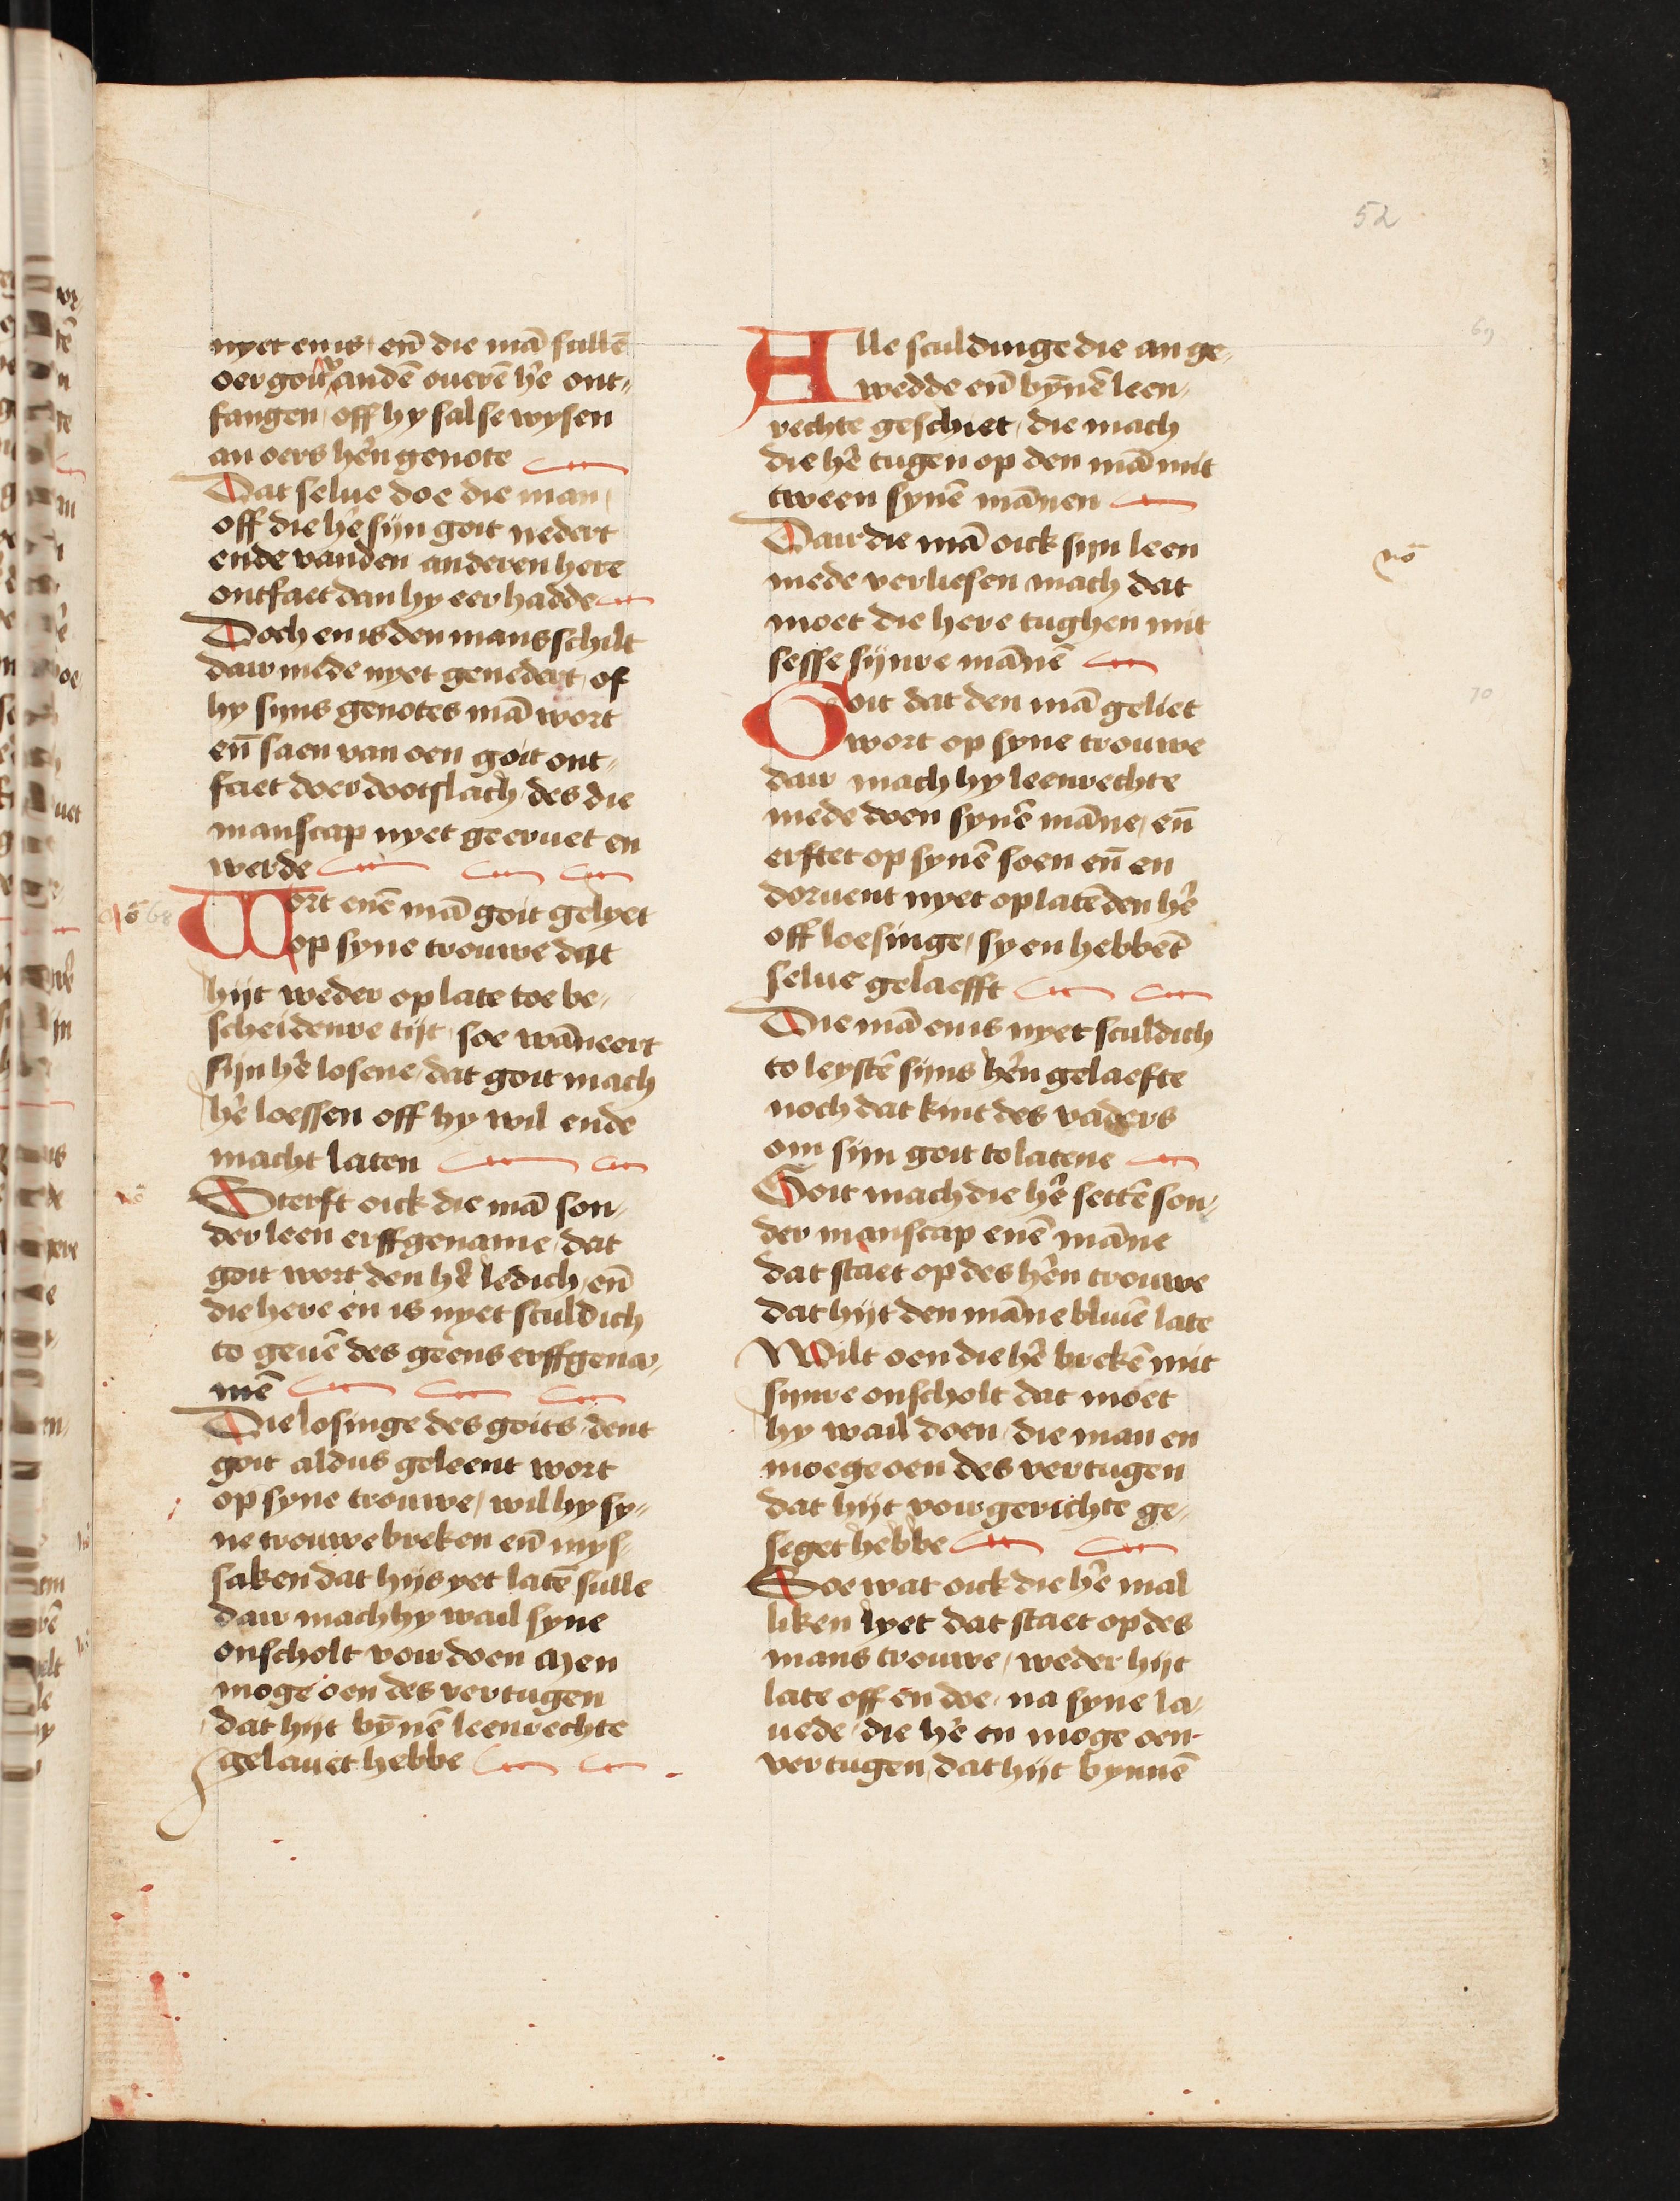 52
nyet en is / en̄ die mā sullē
oer goit anden ouerē h̄e ont„
fangen / off hy sal se wysen
an oers h̄en genote
Dat selue doe die man /
off die h̄e sijn goit nedert
ende vanden anderen here
ontfaet dan hy eer hadde
Doch en is den mans schilt
dair mede nyet genedert / of
hy sijns genotes mā wort
en̄ saen van oen goit ont„
faet doer dootslach / des die
manscap nyet geeruet en
werde
nō 68
Wort enē mā goit gelyet
op syne trouwe dat
hijt weder op late toe be„
scheidenre tijt / soe wāneert
sijn h̄e losene / dat goit mach
h̄e loessen off hy wil ende
macht laten
nō
Sterft oick die mā son„
der leen erffgename / dat
goit wort den h̄e ledich / en̄
die here en is nyet sculdich
to geuē des geens erffgena„
mē
Die losinge des goits / dent
goit aldus geleent wort
op syne trouwe / wil hy sy„
ne trouwe breken en̄ mys„
saken dat hijs yet latē sulle
dair mach hy wail syne
onscholt voir doen Men
moge oen des vertugen
dat hijt bȳnē leenrechte
gelauet hebbe
69
Alle sculdinge die an ge„
wedde en̄ bȳnē leen„
rechte geschiet / die mach
die h̄e tugen op den mā mit
tween synē mānen
Dair die mā oick sijn leen
nō
mede verliesen mach dat
moet die here tughen mit
sesse sijnre mānē
70
Goit dat den mā geliet
wort op syne trouwe
dair mach hy leenrechte
mede doen synē māne / en̄
erftet op synē soen en̄ en
doruent nyet op latē den h̄e
off loesinge / sy en hebbēt
selue gelaefft
Die mā en is nyet sculdich
to leystē sijns h̄en gelaefte
noch dat kint des vaders
om sijn goit to latene
Goit mach die h̄e settē son„
der manscap enē māne
dat staet op des h̄en trouwe
dat hijt den māne bliuē late
Wilt oen die h̄e brekē mit
sijnre onscholt dat moet
hy wail doen / die man en
moege oen des vertugen
dat hijt voir gerichte ge„
seget hebbe
Soe wat oick die h̄e mal
liken lyet dat staet op des
mans trouwe / weder hijt
late off en doe / na syne la„
uede / die h̄e en moge oen
vertugen / dat hijt bynnē